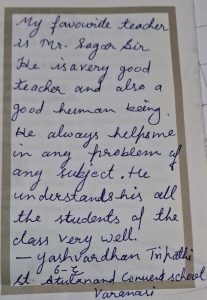 My favourite teacher
is Mr. Sagar Sir
He is a very good
teacher and also a
good human being.
He always helps me
in any problem of
any subject. He
understands his all
the students of the
class very well.
— Yashvardhan Tripathi
6-
St. Atulanand Convent school
Varanasi